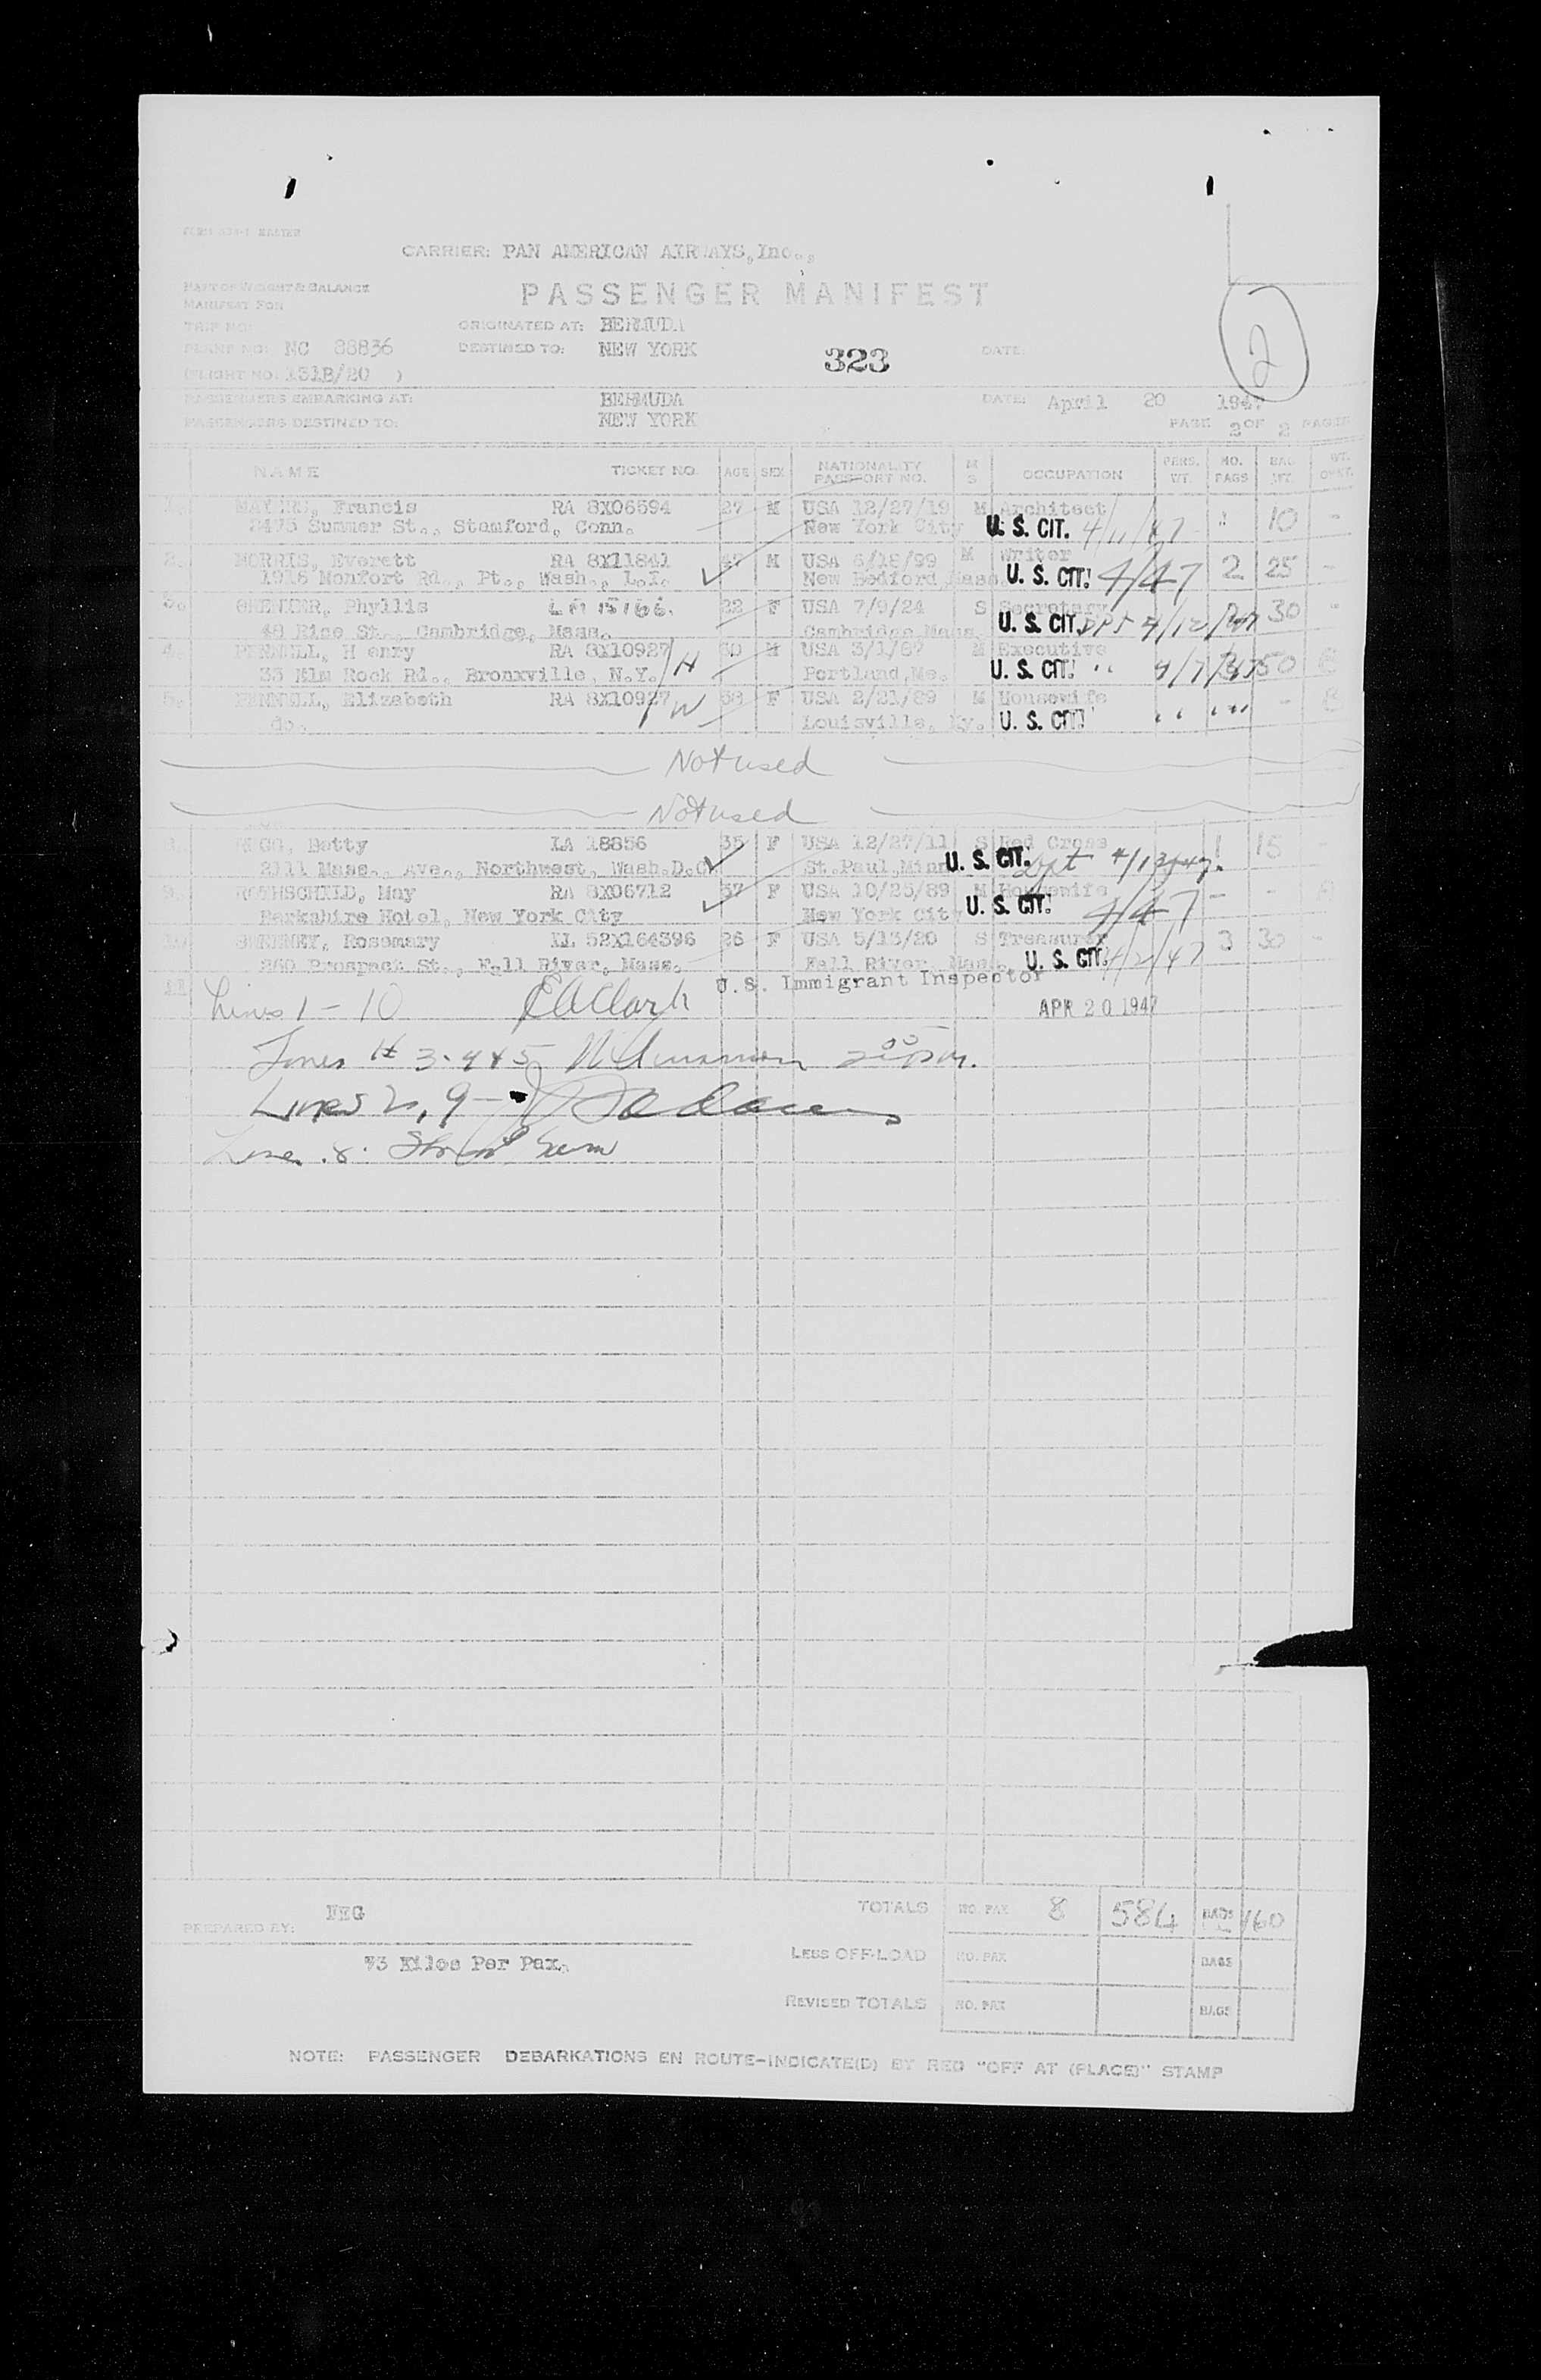 CARRIER: PAN AMERICAN AIRWAYS, Inc.,
PART OF WEIGHT & BALANCE
MANIFEST FOR
PASSENGER MANIFEST
TRIP NO:
ORIGINATED AT: BERMUDA
PLANE NO: NC 88836
DESTINED TO: NEW YORK
323
DATE:
2
(FLIGHT NO. 131B/20 )
PASSENGERS EMBARKING AT: BERMUDA
DATE: April 20 1947
PASSENGERS DESTINED TO: NEW YORK
PAGE 2 OF 2 PAGES
NAME TICKET NO. AGE SEX NATIONALITY PASSPORT NO. M S OCCUPATION PERS. WT. NO. BAGS BAG WT.
Francis RA 8X06594 27 M USA 12/27/19 M Architect 10 -
2475 Summer St., Stamford, Conn. New York City U. S. CIT. 4/11/47
2. MORRIS, Everett RA 8X11841 47 M USA 6/18/99 M Writer 2 25 -
1916 Monfort Rd., Pt., Wash., L.I. New Bedford, Mass. U. S. CIT. 4/47
3. Phyllis LA 15166. 22 F USA 7/9/24 S Secretary 30 -
48 Rice St., Cambridge, Mass. Cambridge Mass. U. S. CIT. 4/12/47
4. PENNELL, H enry RA 8X10927/H 60 M USA 3/1/87 M Executive
35 Elm Rock Rd., Bronxville, N.Y. Portland, Me. U. S. CIT. " 4/7/47 50
5. PENNELL, Elizabeth RA 8X10927/W 58 F USA 2/21/89 M Housewife -
do. Louisville, Ky. U. S. CIT.
Not used
Not used
Betty LA 18856 35 F USA 12/27/11 S Red Cross 1 15
2111 Mass., Ave., Northwest, Wash.D.C. St. Paul, Minn. U. S. CIT. 4/13/47.
9. ROTHSCHILD, May RA 8X06712 57 F USA 10/25/89 M Housewife - -
Berkshire Hotel, New York City New York City U. S. CIT. 4/47
10. Rosemary 52X164396 26 F USA 5/13/20 S Treasurer 3 30 -
260 Prospect St., Fall River, Mass. Fall River, Mass. U. S. CIT. 4/2/47
11
U.S. Immigrant Inspector
Lines 1 - 10 Clark
APR 20 1947
Lines 2, 9 -
PREPARED BY:
73 Kilos Per Pax.
TOTALS NO. PAX 8 584 BAGS 160
LESS OFF-LOAD NO. PAX BAGS
REVISED TOTALS NO. PAX BAGS
NOTE: PASSENGER DEBARKATIONS EN ROUTE-INDICATE(D) BY RED "OFF AT (PLACE)" STAMP